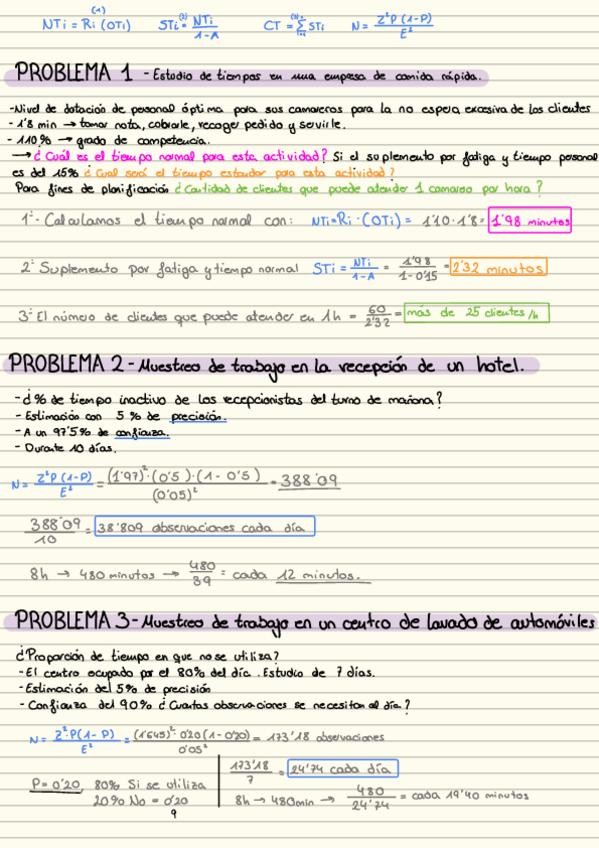 (1)
NTi = Ri (OTi)   STi (2)= NTi / 1-A   CT (3)= Σ STi   N= Z²P (1-P) / E²
PROBLEMA 1 - Estudio de tiempos en una empresa de comida rápida.
-Nivel de dotación de personal óptima para sus camareros para la no espera excesiva de los clientes
- 1'8 min → tomar nota, cobrarle, recoger pedido y servirle.
- 110% → grado de competencia.
→ ¿Cuál es el tiempo normal para esta actividad? Si el suplemento por fatiga y tiempo personal
es del 15% ¿Cual será el tiempo estandar para esta actividad?
Para fines de planificación ¿Cantidad de clientes que puede atender 1 camarero por hora?
1º- Calculamos el tiempo normal con: NTi=Ri·(OTi) = 1'10·1'8= 1'98 minutos
2º Suplemento por fatiga y tiempo normal STi = NTi / 1-A = 1'98 / 1-0'15 = 2'32 minutos
3º El número de clientes que puede atender en 1h = 60 / 2'32 = más de 25 clientes/h
PROBLEMA 2 - Muestreo de trabajo en la recepción de un hotel.
- ¿% de tiempo inactivo de los recepcionistas del turno de mañana?
- Estimación con 5 % de precisión.
- A un 97'5% de confianza.
- Durante 10 días.
N= Z²P (1-P) / E² = (1'97)²·(0'5)·(1-0'5) / (0'05)² = 388'09
388'09 / 10 = 38'809 observaciones cada día
8h → 480 minutos → 480 / 39 = cada 12 minutos.
PROBLEMA 3 - Muestreo de trabajo en un centro de lavado de automóviles
¿Proporción de tiempo en que no se utiliza?
- El centro ocupado por el 80% del día. Estudio de 7 días.
- Estimación del 5% de precisión
- Confianza del 90% ¿Cuantas observaciones se necesitan al día?
N= Z²·P(1-P) / E² = (1'645)²·0'20(1-0'20) / 0'05² = 173'18 observaciones
P= 0'20, 80% Si se utiliza
20% No = 0'20
9
173'18 / 7 = 24'74 cada día
8h → 480min → 480 / 24'74 = cada 19'40 minutos